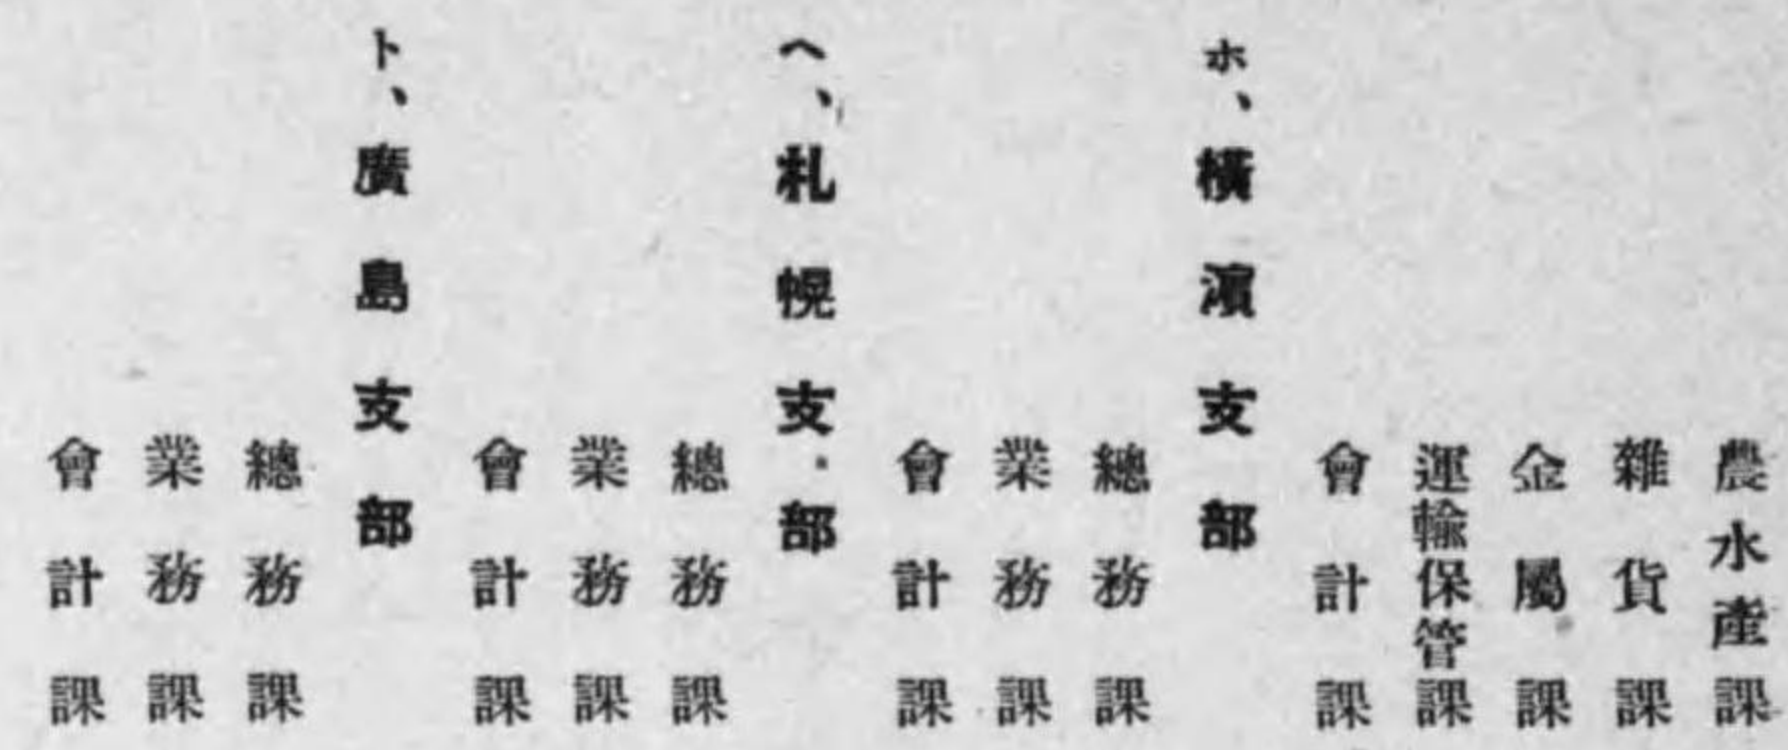 農水產課
雜貨課
金屬課
運輸保管課
會計課
ホ、橫濱支部
總務課
業務課
會計課
ヘ、札幌支部
總務課
業務課
會計課
ト、廣島支部
總務課
業務課
會計課